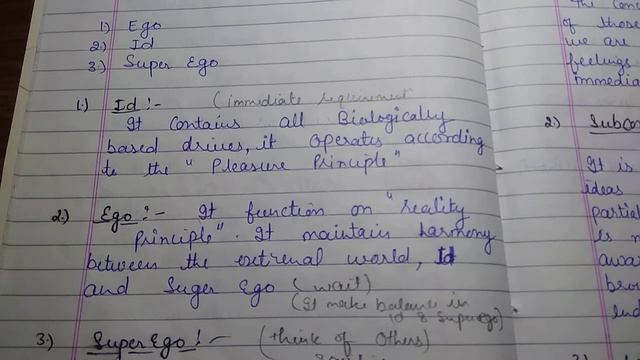 1) Ego
2) Id
3) Super Ego
1.) Id :- (immediate requirement
It Contains all Biologically
based drives, it operates according
to the "Pleasure Principle"
2.) Ego :- It function on "reality
principle". It maintain harmony
between the extrenal world, Id
and Suger Ego (wait)
(It make balance in
id & Superego)
3.) Super Ego :- (think of Others)
of those
we are
feelings
immedia
2.) Subcon
It is
ideas
partial
is n
awa